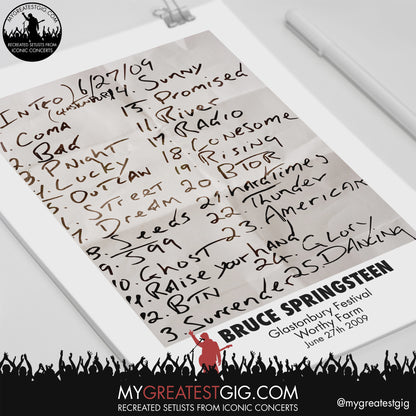 MYGREATESTGIG.COM
RECREATED SETLISTS FROM
ICONIC CONCERTS
INTRO) 6/27/09
1. COMA
2. Bad
P Night
Lucky
OUTLAW
STREET
DREAM
8. Seeds
9.
Ghost
Raise your hand
BTN
3. Surrender
14. Sunny
15. Promised
River
17. RADIO
18. Lonesome
Rising
20. BTOR
21. HardTimes
22. Thunder
23. AMERICAN
24. GLORY
25. DANCING
BRUCE SPRINGSTEEN
Glastonbury Festival
Worthy Farm
June 27th 2009
MYGREATESTGIG.COM
RECREATED SETLISTS FROM ICONIC CONCERTS
@mygreatestgig